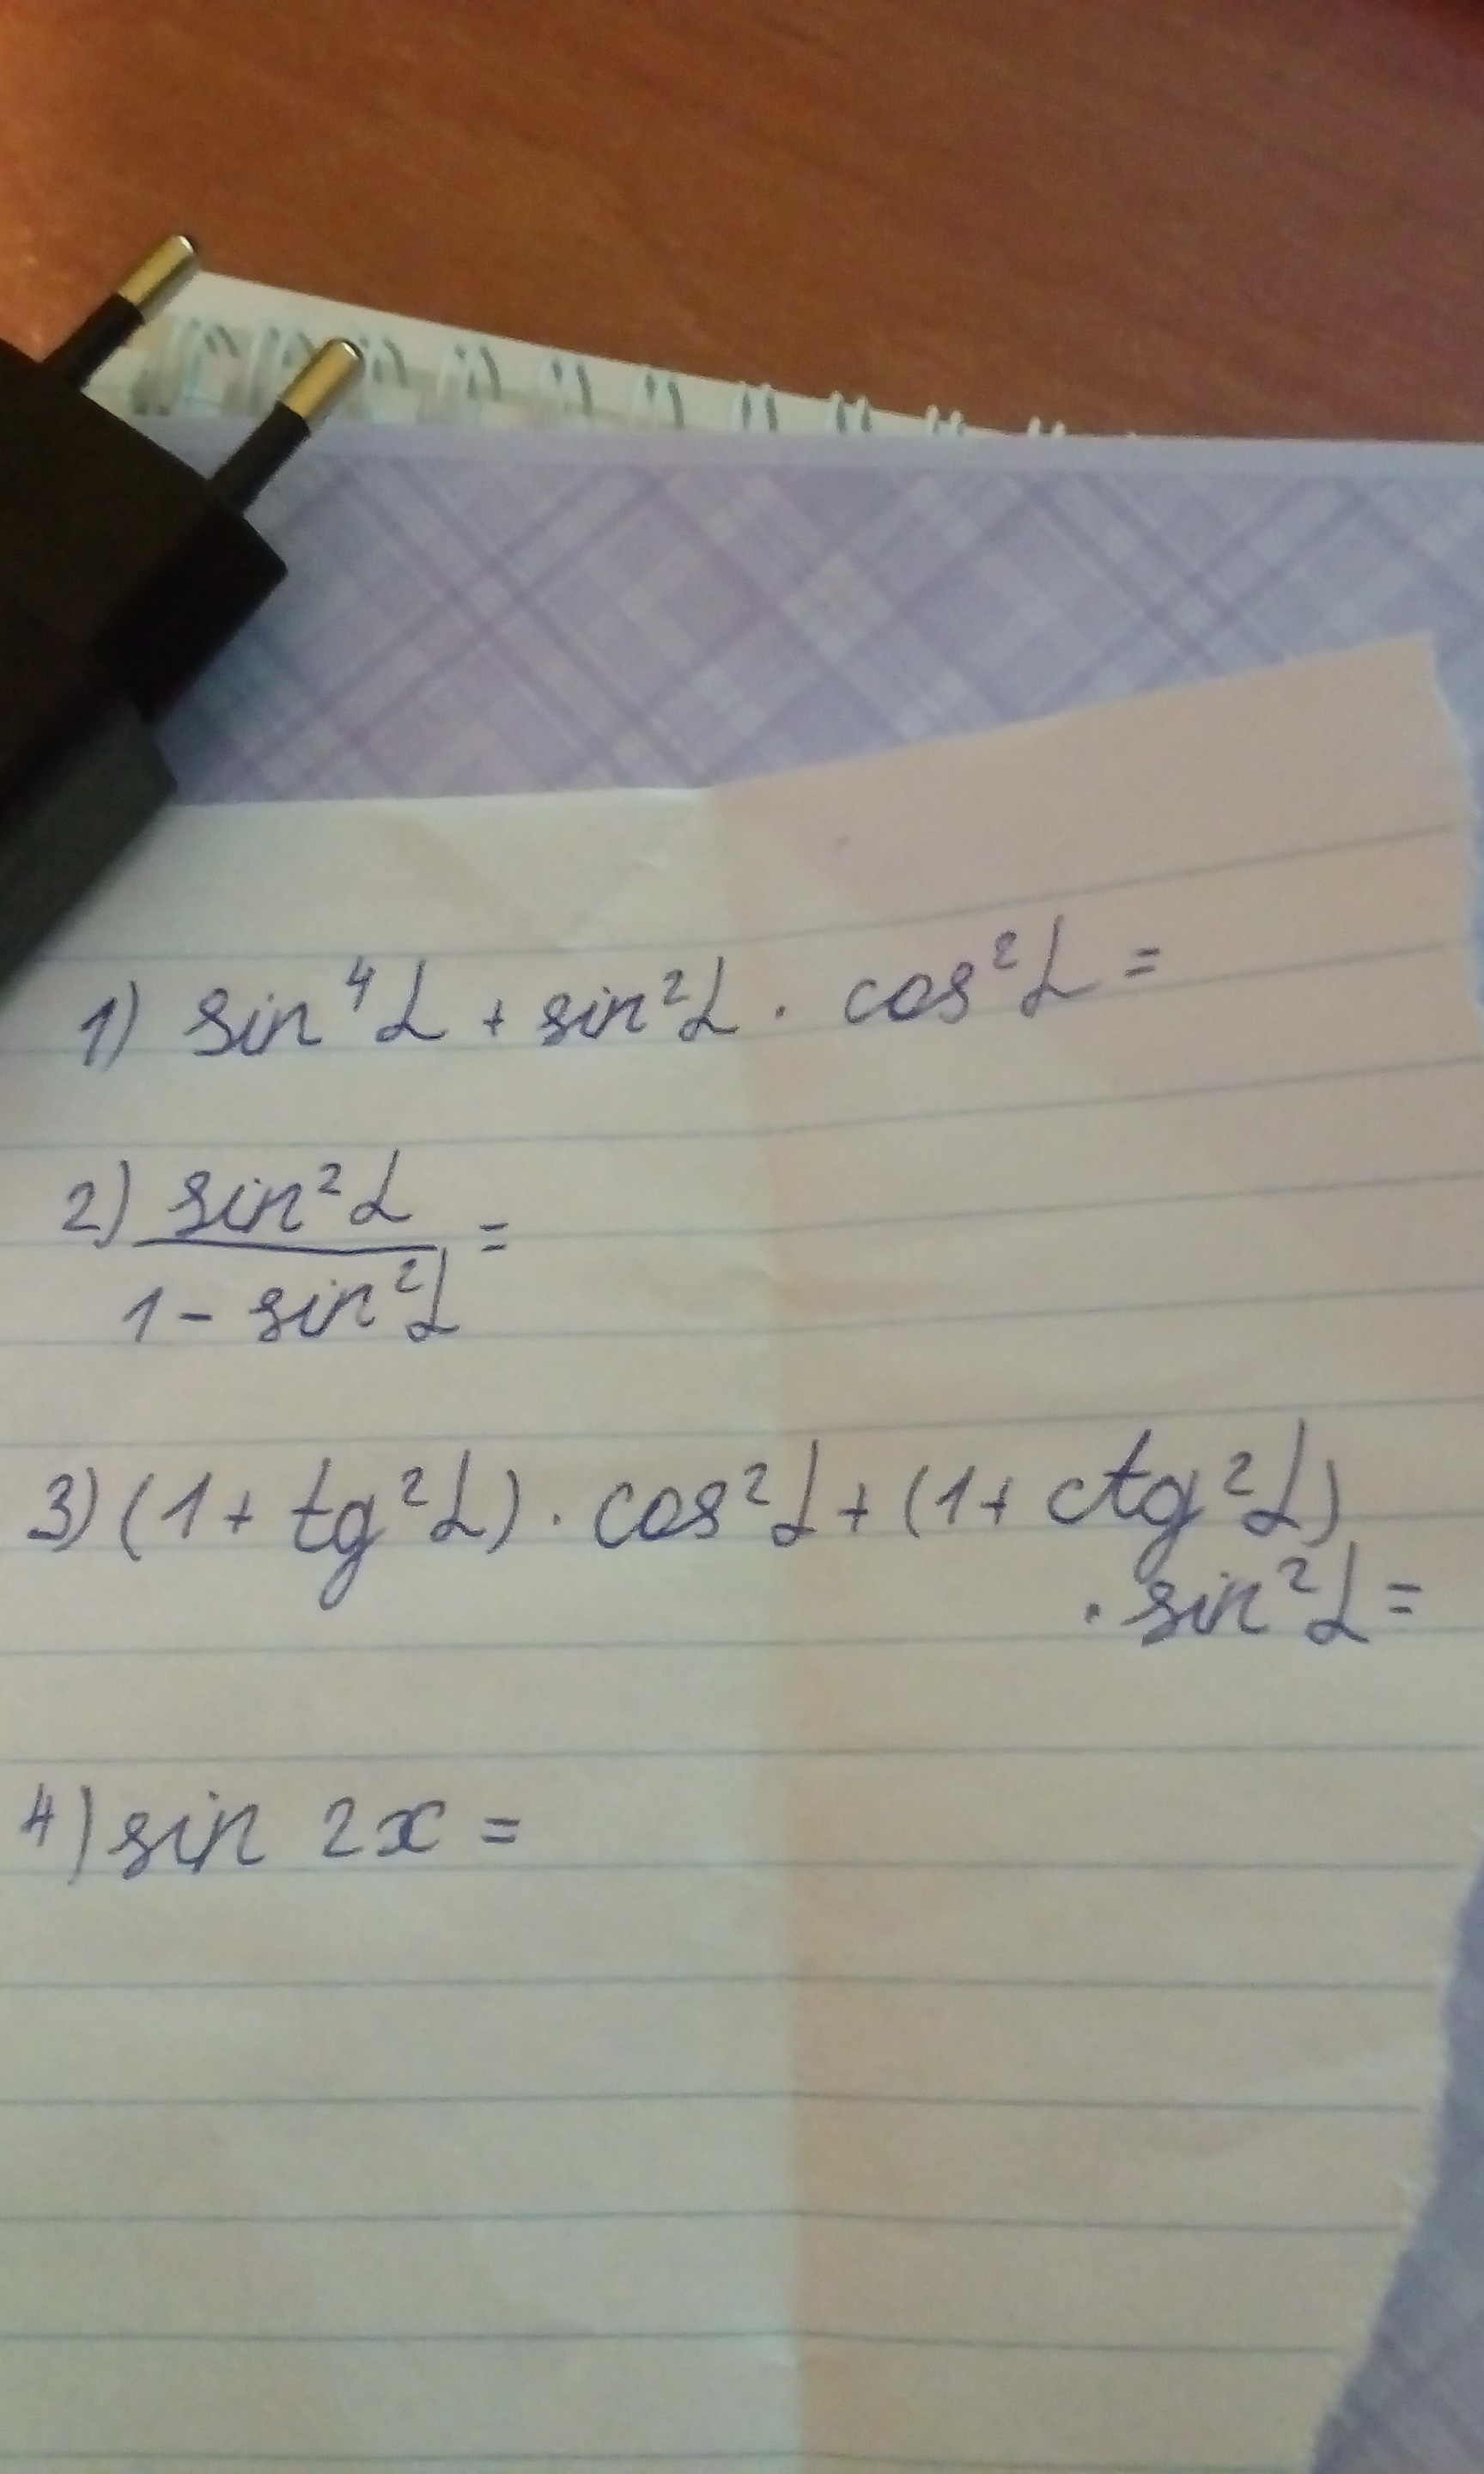 1) sin⁴α + sin²α · cos²α =
2) sin²α
1 - sin²α =
3) (1 + tg²α) · cos²α + (1 + ctg²α)
· sin²α =
4) sin 2x =